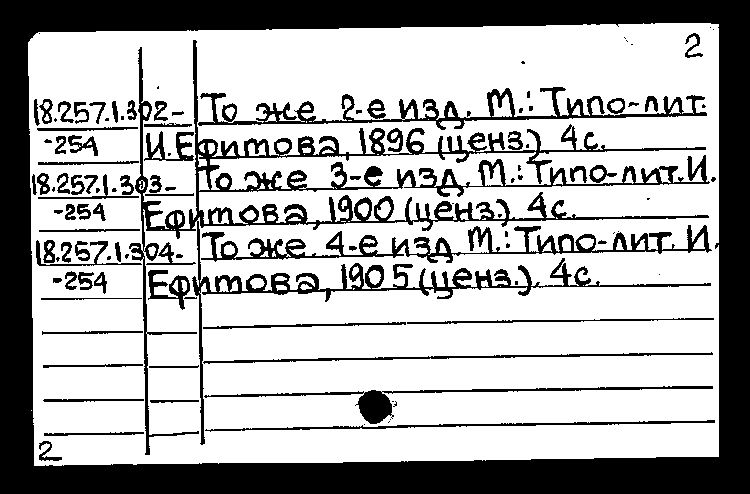 2
18.257.1.302- То же. 2-е изд. М.: Типо-лит.
-254 И. Ефитова, 1896 (ценз.). 4с.
18.257.1.303- То же. 3-е изд. М.: Типо-лит. И.
-254 Ефитова, 1900 (ценз.). 4с.
18.257.1.304- То же. 4-е изд. М.: Типо-лит. И.
-254 Ефитова, 1905 (ценз.). 4с.
2